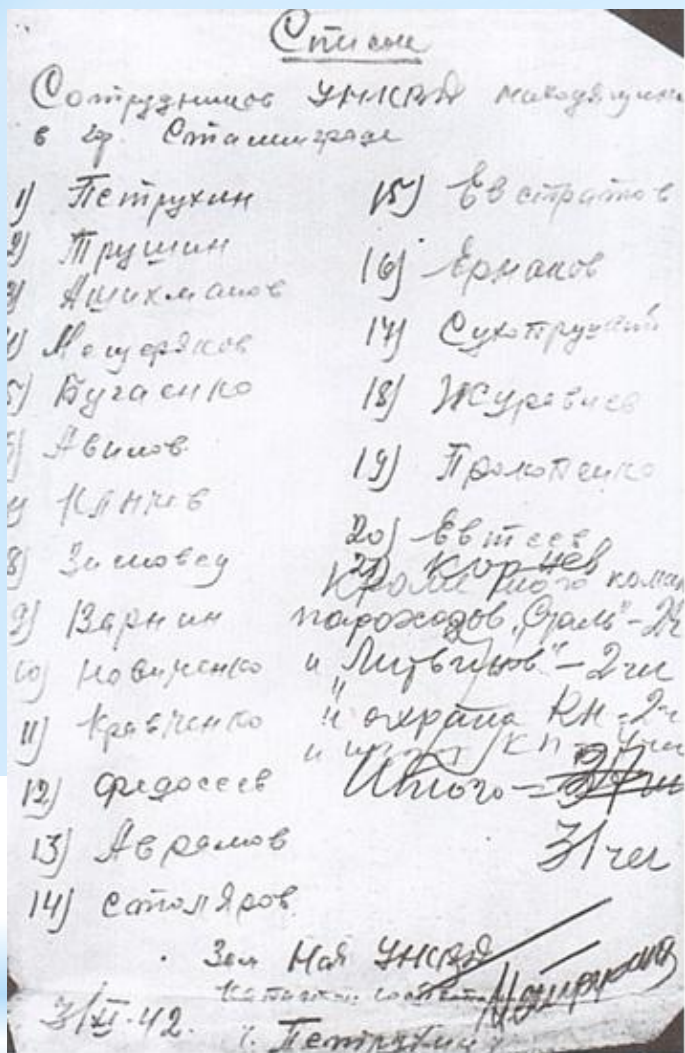 Список
Сотрудников УНКВД находящихся
в гр. Сталинграде
1) Петрухин
2) Трушин
3) Ашихманов
4) Мещеряков
5) Бугаенко
6) Авилов
8) Зимовец
9) Варнин
10) Новиченко
11) Кравченко
12) Федосеев
13) Аврамов
14) Столяров
15) Евстратов
16) Ермаков
17) Сухоруцкий
18) Журавлев
19) Прокопенко
20) Евтеев
21) Корнев
Кроме того коман
пароходов „Сталь" - 2ч
и „Литвинов" - 2 чел
и охрана КН - 2ч
и КП
Итого -
31 чел
Зам Нач УНКВД
Капитан
Петрухин
3/XI-42.